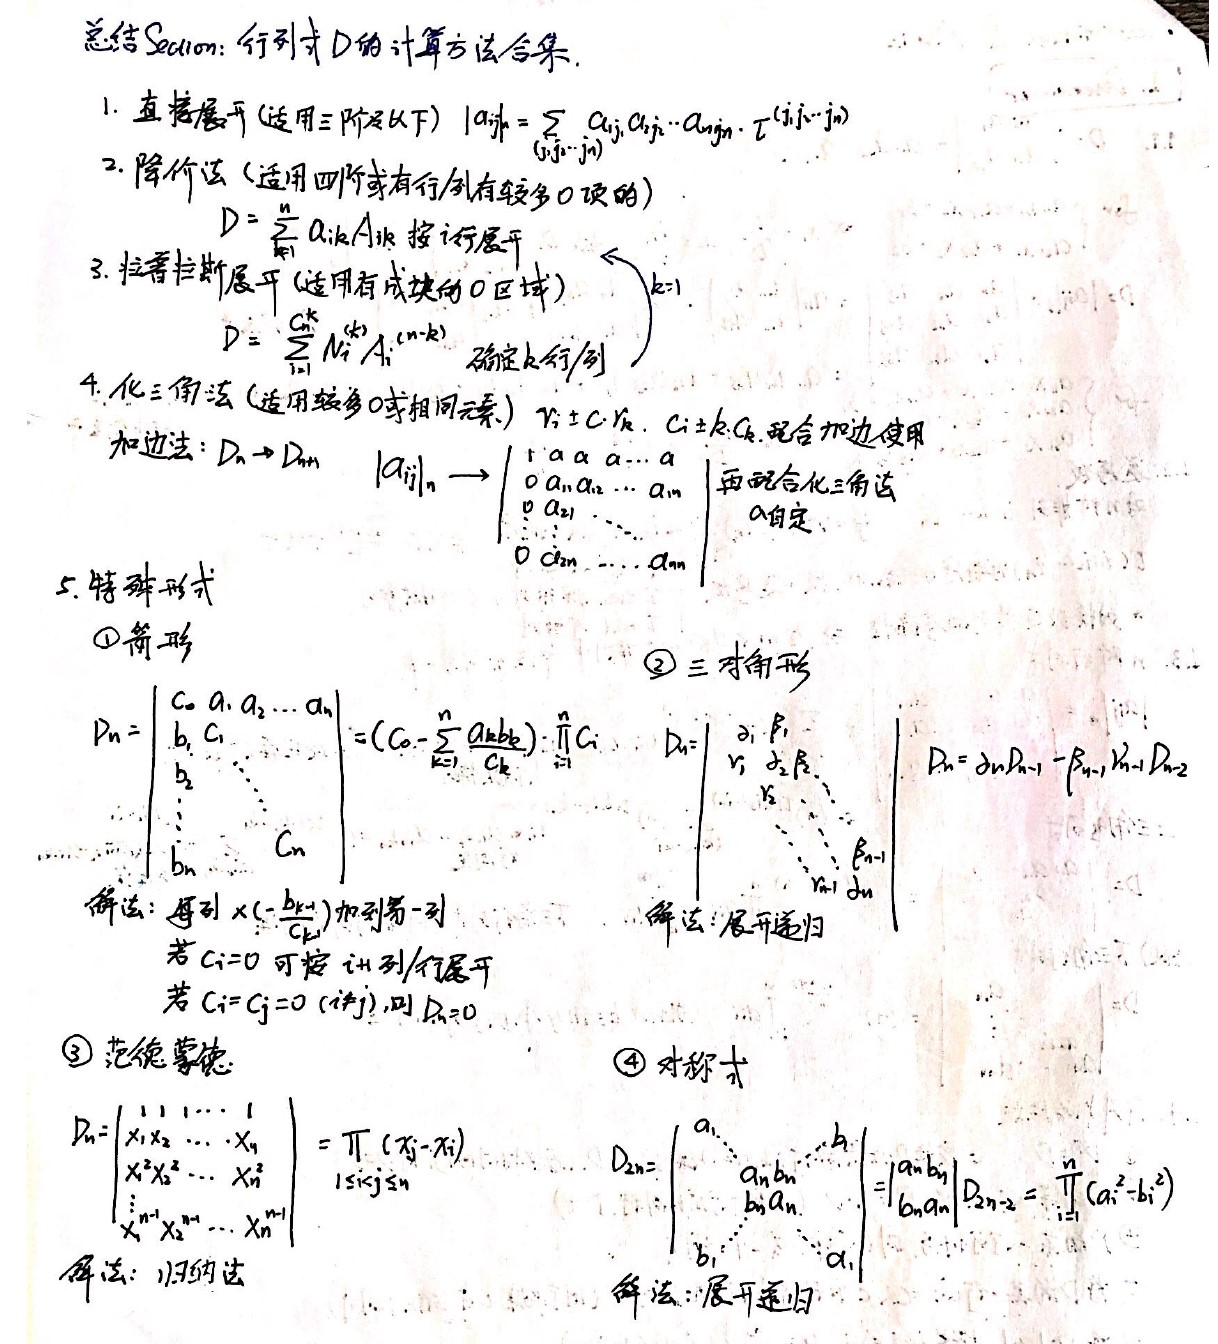 总结Section: 行列式D的计算方法合集.
1. 直接展开(适用三阶及以下) |aij|n = ∑(j1j2…jn) a1j1 a2j2…anjn · τ^(j1j2…jn)
2. 降价法 (适用四阶或有行/列有较多0项的)
D = ∑_{k=1}^{n} aik Aik 按i行展开
3. 拉普拉斯展开 (适用有成块的0区域)
k=1
D = ∑_{i=1}^{C_n^k} Ni^(k) Ai^(n-k) 确定k行/列
4. 化三角法 (适用较多0或相同元素) ri ± c·rk. ci ± k·ck. 配合加边使用
加边法: Dn → Dn+1 |aij|n →
1 a a a … a
0 a11 a12 … a1n
0 a21
0 a2n …… ann
再配合化三角法
a自定
5. 特殊形式
① 箭形
Dn =
c0 a1 a2 … an
b1 c1
b2
bn cn
= (c0 - ∑_{k=1}^{n} akbk/ck) · ∏_{i=1}^{n} ci
解法: 每列 ×(-bk-1/ck-1) 加到第一列
若 ci=0 可按 i+1 列/行展开
若 ci=cj=0 (i≠j), 则 Dn=0
② 三对角形
Dn =
∂1 β1
γ1 ∂2 β2
γ2
βn-1
γn-1 ∂n
Dn = ∂nDn-1 - βn-1γn-1Dn-2
解法: 展开递归
③ 范德蒙德
Dn =
1 1 1 … 1
x1 x2 … xn
x1² x2² … xn²
x1^n-1 x2^n-1 … xn^n-1
= ∏_{1≤i<j≤n} (xj-xi)
解法: 归纳法
④ 对称式
D2n =
a1 b1
an bn
bn an
b1 a1
= |an bn bn an| D2n-2 = ∏_{i=1}^{n} (ai²-bi²)
解法: 展开递归